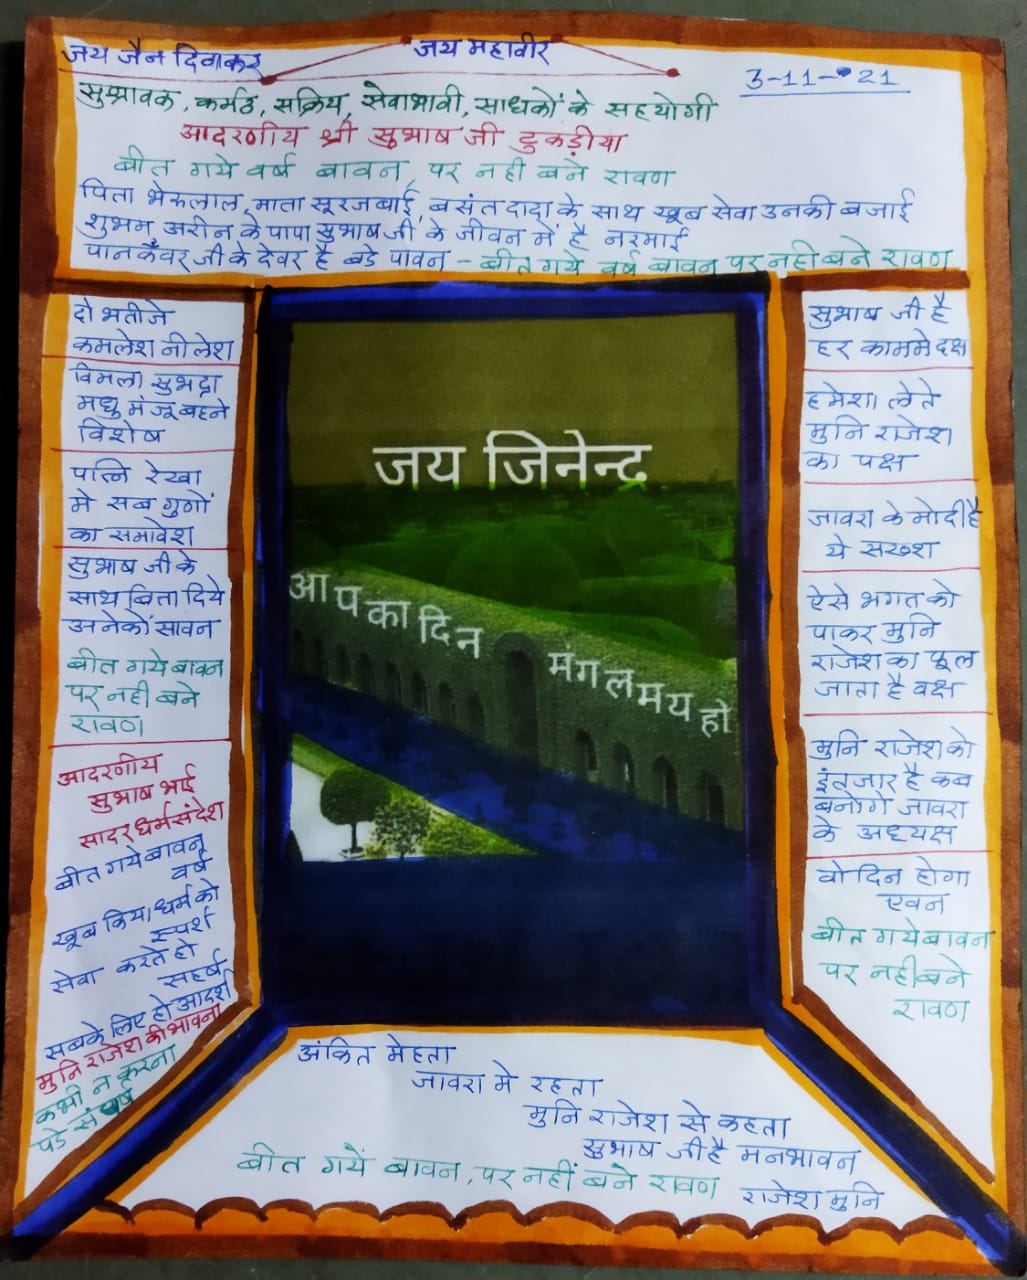 जय जैन दिवाकर
जय महावीर
3-11-21
सुश्रावक, कर्मठ, सक्रिय, सेवाभावी, साधकों के सहयोगी
आदरणीय श्री सुभाष जी टुकड़ीया
बीत गये वर्ष बावन, पर नही बने रावण
पिता भेरूलाल, माता सूरजबाई, बसंत दादा के साथ खूब सेवा उनकी बजाई
शुभम, अरीन के पापा सुभाष जी, के जीवन में है नरमाई
पानकँवर जी के देवर है बडे पावन - बीत गये वर्ष बावन पर नही बने रावण
दो भतीजे
कमलेश नीलेश
विमला सुभद्रा
मधु मंजू बहने
विशेष
पत्नि रेखा
मे सब गुणों
का समावेश
सुभाष जी के
साथ बिता दिये
अनेकों सावन
बीत गये बावन
पर नही बने
रावण
आदरणीय
सुभाष भाई
सादर धर्म संदेश
बीत गये बावन
वर्ष
खूब किया धर्म को
स्पर्श
सेवा करते हो
सहर्ष
सबके लिए हो आदर्श
मुनि राजेश की भावना
कभी न करना
पडे संघर्ष
जय जिनेन्द्र
आपका दिन
मंगलमय हो
सुभाष जी है
हर काम मे दक्ष
हमेशा लेते
मुनि राजेश
का पक्ष
जावरा के मोदी है
ये सख्श
ऐसे भगत को
पाकर मुनि
राजेश का फूल
जाता है वक्ष
मुनि राजेश को
इंतजार है कब
बनोगे जावरा
के अध्यक्ष
वो दिन होगा
एवन
बीत गये बावन
पर नही बने
रावण
अंकित मेहता
जावरा मे रहता
मुनि राजेश से कहता
सुभाष जी है मनभावन
बीत गयें बावन, पर नहीं बने रावण
राजेश मुनि